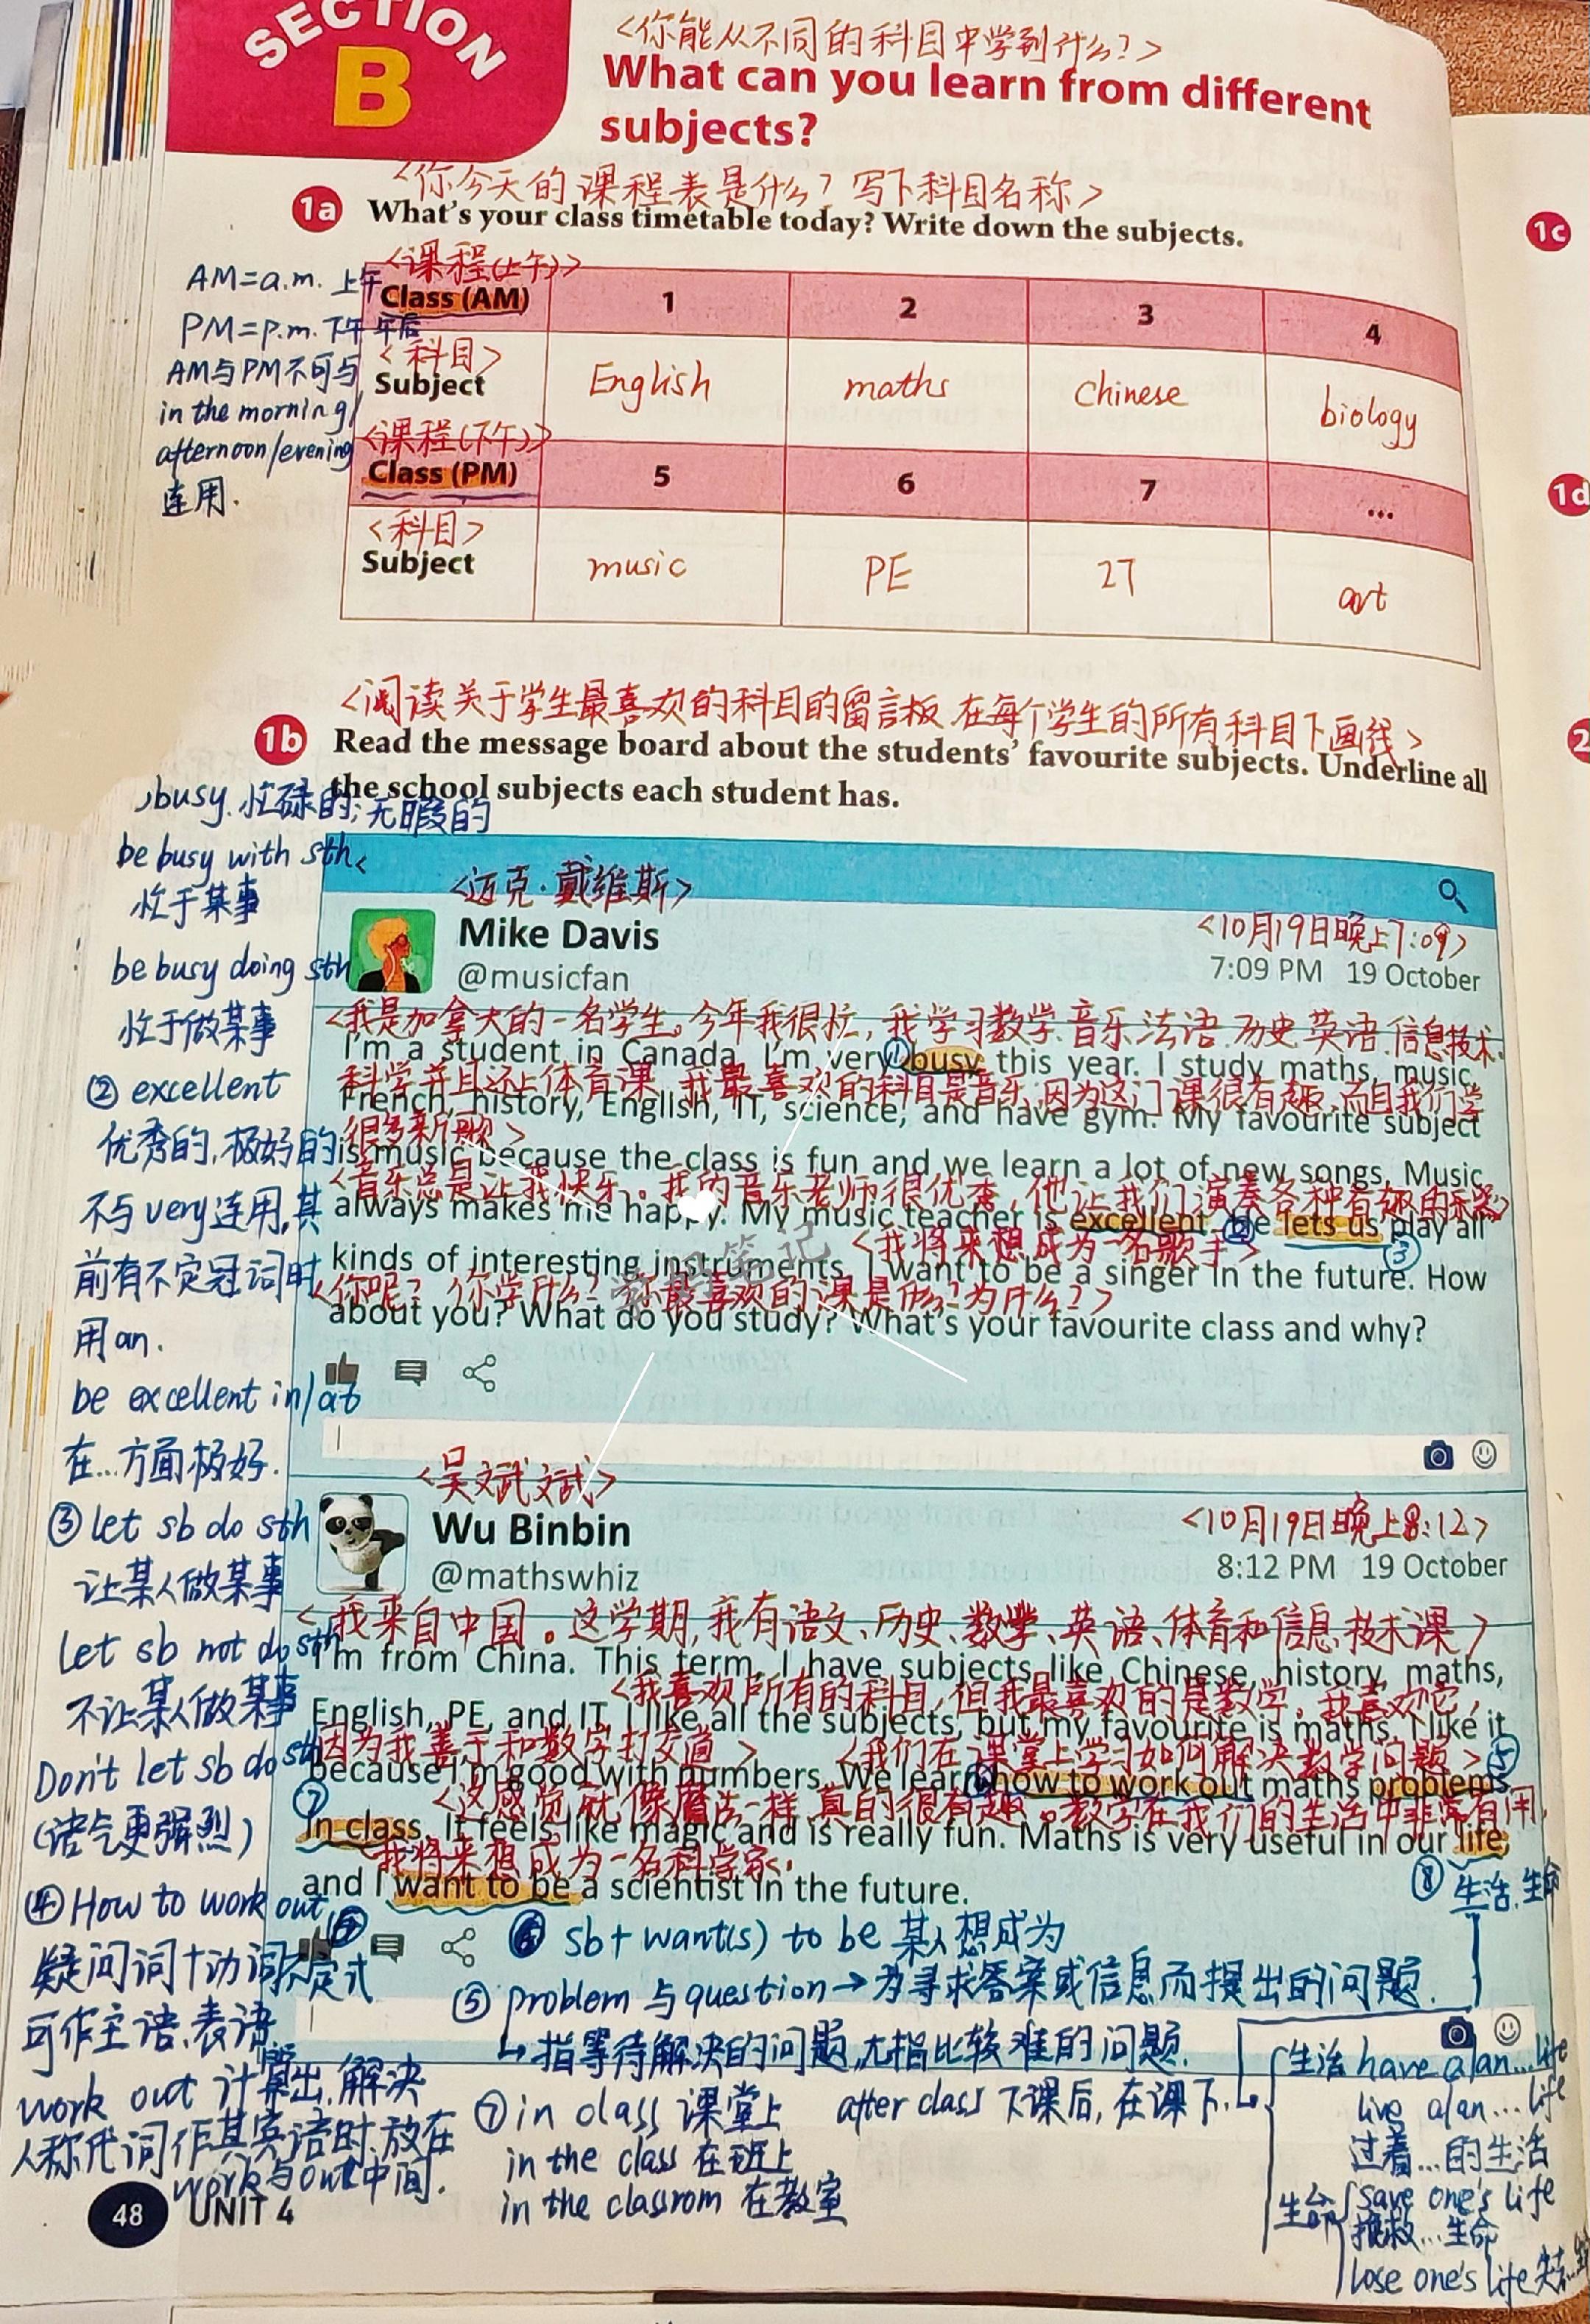 SECTION
B
<你能从不同的科目中学到什么?>
What can you learn from different
subjects?
<你今天的课程表是什么? 写下科目名称>
1a What's your class timetable today? Write down the subjects.
<课程(上午)>
Class (AM) 1 2 3 4
<科目>
Subject English maths Chinese biology
<课程(下午)>
Class (PM) 5 6 7 ...
<科目>
Subject music PE IT art
AM=a.m. 上午
PM=p.m. 下午 午后
AM与PM不可与
in the morning/
afternoon/evening
连用.
<阅读关于学生最喜欢的科目的留言板.在每个学生的所有科目下画线>
1b Read the message board about the students' favourite subjects. Underline all
the school subjects each student has.
busy.忙碌的;无暇的
be busy with sth
忙于某事
be busy doing sth
忙于做某事
② excellent
优秀的,极好的
不与very连用,其
前有不定冠词时
用an.
be excellent in/at
在...方面极好.
③ let sb do sth
让某人做某事
Let sb not do sth
不让某人做某事
Don't let sb do sth
(语气更强烈)
④ How to work out
疑问词+动词不定式
可作主语、表语
work out 计算出.解决
人称代词作其宾语时.放在
work与out中间.
<迈克·戴维斯>
Mike Davis
@musicfan
<10月19日晚上7:09>
7:09 PM 19 October
<我是加拿大的一名学生。今年我很忙,我学习数学.音乐.法语.历史.英语.信息技术.
I'm a student in Canada. I'm very ① busy this year. I study maths, music,
科学并且还上体育课.我最喜欢的科目是音乐,因为这门课很有趣,而且我们学
French, history, English, IT, science, and have gym. My favourite subject
很多新歌>
is music because the class is fun and we learn a lot of new songs. Music
<音乐总是让我快乐。我的音乐老师很优秀,他让我们演奏各种有趣的乐器>
always makes me happy. My music teacher is excellent. ② He lets us play all
<我将来想成为一名歌手> ③
kinds of interesting instruments. I want to be a singer in the future. How
<你呢? 你学什么? 你最喜欢的课是什么?为什么?>
about you? What do you study? What's your favourite class and why?
<吴斌斌>
Wu Binbin
@mathswhiz
<10月19日晚上8:12>
8:12 PM 19 October
<我来自中国。这学期,我有语文、历史、数学、英语、体育和信息技术课>
I'm from China. This term, I have subjects like Chinese, history, maths,
<我喜欢所有的科目,但我最喜欢的是数学.我喜欢它,
English, PE, and IT. I like all the subjects, but my favourite is maths. I like it
因为我善于和数字打交道> <我们在课堂上学习如何解决数学问题> ⑤
because I'm good with numbers. We learn ④ how to work out maths problems
⑦ <这感觉就像魔法一样.真的很有趣。数学在我们的生活中非常有用,
in class. It feels like magic and is really fun. Maths is very useful in our life,
我将来想成为一名科学家.
and I want to be a scientist in the future.
⑧ 生活.生命
⑥
⑥ sb+want(s) to be 某人想成为
⑤ problem 与 question→为寻求答案或信息而提出的问题.
↳指等待解决的问题,尤指比较难的问题.
⑦ in class 课堂上 after class 下课后,在课下.
in the class 在班上
in the classrom 在教室
生活 have a/an...life
live a/an...life
过着...的生活
生命 save one's life
拯救...生命
lose one's life
48 UNIT 4
1c
1d
2